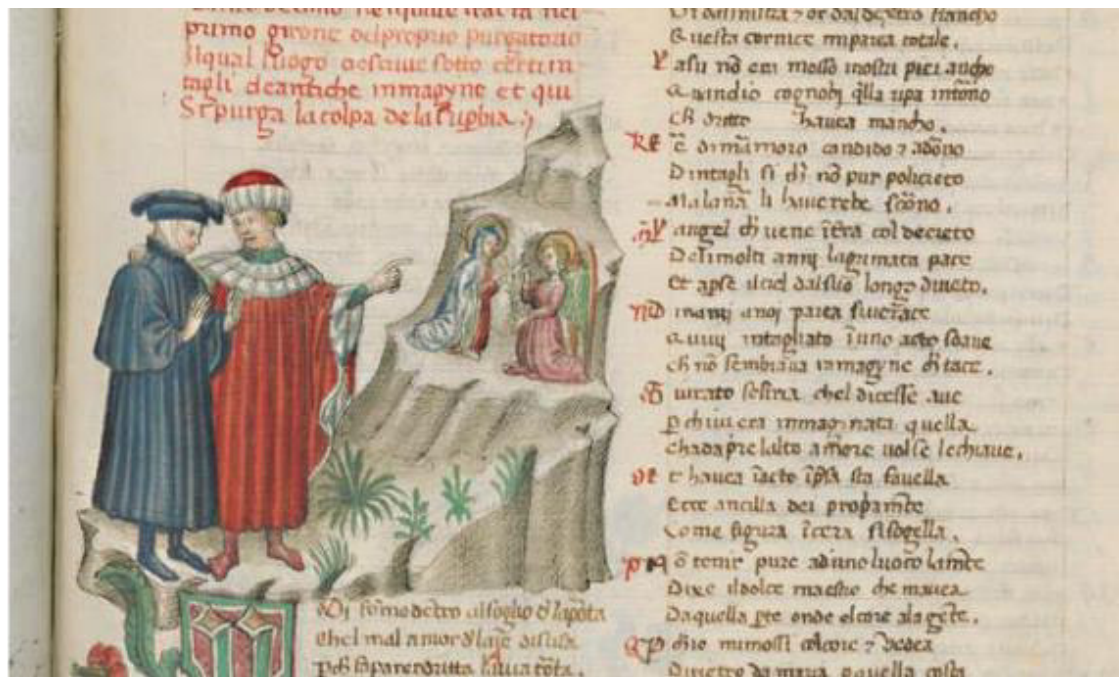 primo girone del proprio purgatorio
il qual luogo descrive sotto certi in-
tagli de antiche immagyne et qui
Si purga la colpa de la supbia
fomo dētro al soglio d la pōta
chel mal amor d laīe disusa
pch fa parer dritta la via tōta.
Questa cornice mparea cotale.
asu nō eran mossi nostri piei ancho
quandio cognobi qlla ripa intōno
ch dritto havea mancho.
di marmoro candido ? adōno
Dintagli si ch nō pur policleto
Ma la li haverebe scōno.
angel ch vene ītra col decreto
De li molti anni lagrimata pace
Et apse il ciel dal suo longo diveto.
inanti a noi parea si verace
quivi intagliato ī uno acto soave
ch nō sembiava immagyne ch tace.
iurato sesiria chel dicesse ave
p ch ivi era immaginata quella
chadaprir lalto amore volse le chiave.
t havea ī acto īpsa sta favella
Ecce ancilla dei propamēte
Come figura ī cera si sogella.
ō tenir pure ad uno luoco la mēte
Dixe il dolce maestro che mavea
Da quella pte onde el core a la gēte.
chio mi mossi col core ? vedea
Diretro da maria da quella costa